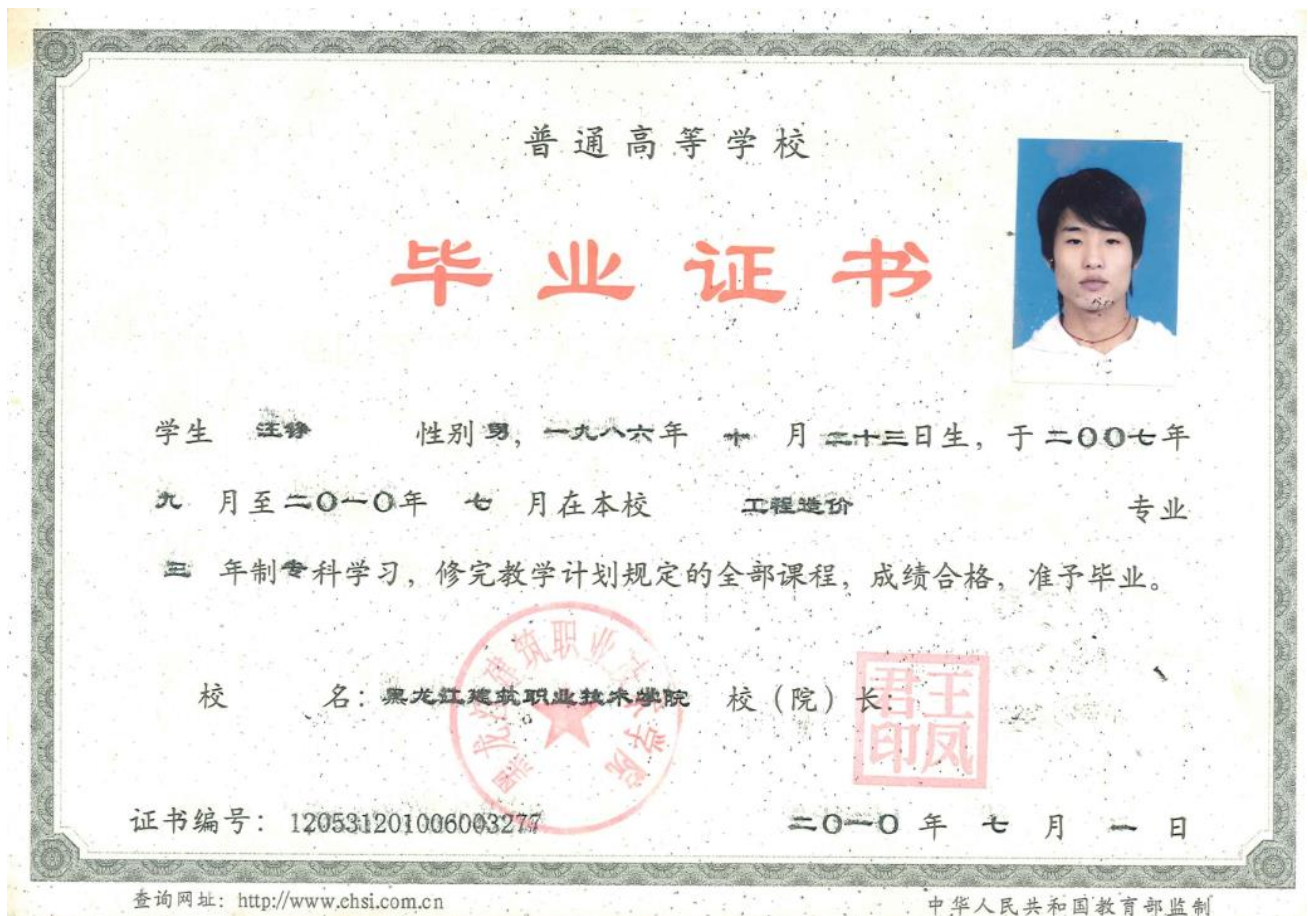 普通高等学校
毕业证书
学生 汪铮 性别 男，一九八六年 十 月 二十三日生，于二〇〇七年
九 月至二〇一〇年 七 月在本校 工程造价 专业
三 年制专科学习，修完教学计划规定的全部课程，成绩合格，准予毕业。
校 名：黑龙江建筑职业技术学院 校（院）长：
黑龙江建筑职业技术学院
王凤君印
证书编号：120531201006003277 二〇一〇 年 七 月 一 日
查询网址：http://www.chsi.com.cn 中华人民共和国教育部监制